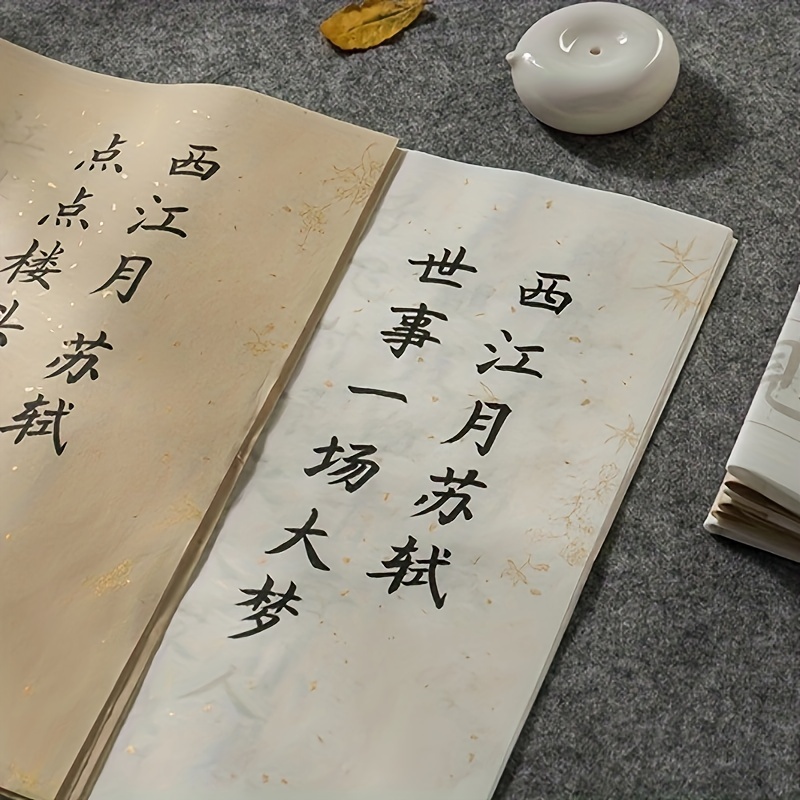 西江月苏轼
世事一场大梦
西江月 苏轼
点点楼头